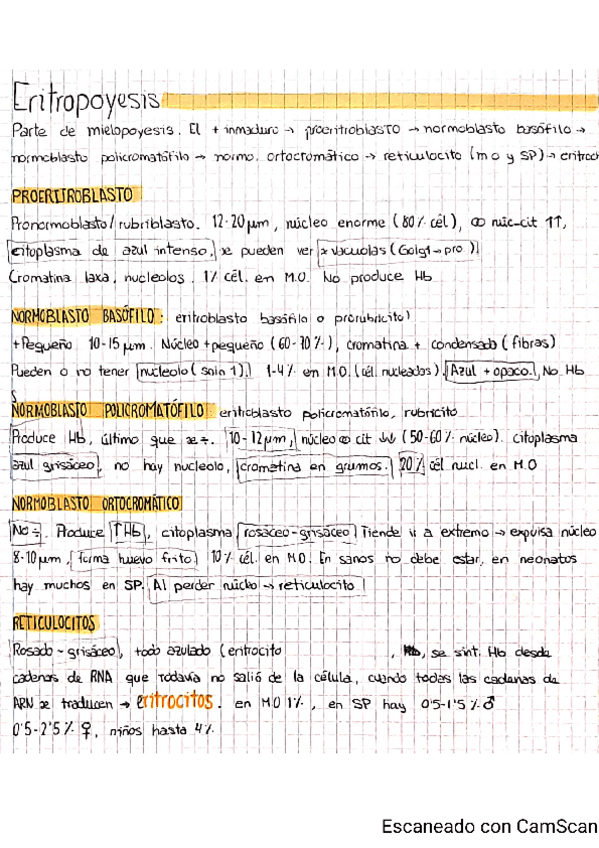 Eritropoyesis
Parte de mielopoyesis. El + inmaduro → proeritroblasto → normoblasto basófilo →
normoblasto policromatófilo → normo. ortocromático → reticulocito (m o y SP) → eritroci
PROERITROBLASTO
Pronormoblasto/rubriblasto. 12-20 μm, núcleo enorme (80% cél), ∞ núc-cit ↑↑,
citoplasma de azul intenso, se pueden ver x vacuolas (Golgi → pro)
Cromatina laxa, nucleolos. 1% cél. en M.O. No produce Hb
NORMOBLASTO BASÓFILO: eritroblasto basófilo o prorubricito)
+Pequeño 10-15 μm. Núcleo + pequeño (60-70%), cromatina + condensada (fibras)
Pueden o no tener nucleolo (solo 1). 1-4% en M.O. (cél. nucleadas). Azul + opaco. No Hb
s
NORMOBLASTO POLICROMATÓFILO: eritroblasto policromatófilo, rubricito
Produce Hb, último que se ÷. 10-12 μm, núcleo ∞ cit ↓↓ (50-60% núcleo). citoplasma
azul grisáceo, no hay nucleolo, cromatina en grumos. 20% cél nucl. en M.O
NORMOBLASTO ORTOCROMÁTICO
No ÷. Produce ↑Hb, citoplasma rosáceo-grisáceo Tiende ir a extremo → expulsa núcleo
8-10 μm, forma huevo frito 10% cél. en M.O. En sanos no debe estar, en neonatos
hay muchos en SP. Al perder núcleo → reticulocito
RETICULOCITOS
Rosado-grisáceo, todo azulado (eritrocito , Hb, se sint. Hb desde
cadenas de RNA que todavía no salió de la célula, cuando todas las cadenas de
ARN se traducen → eritrocitos. en MO 1%, en SP hay 0'5-1'5% ♂
0'5-2'5% ♀, niños hasta 4%
Escaneado con CamScan